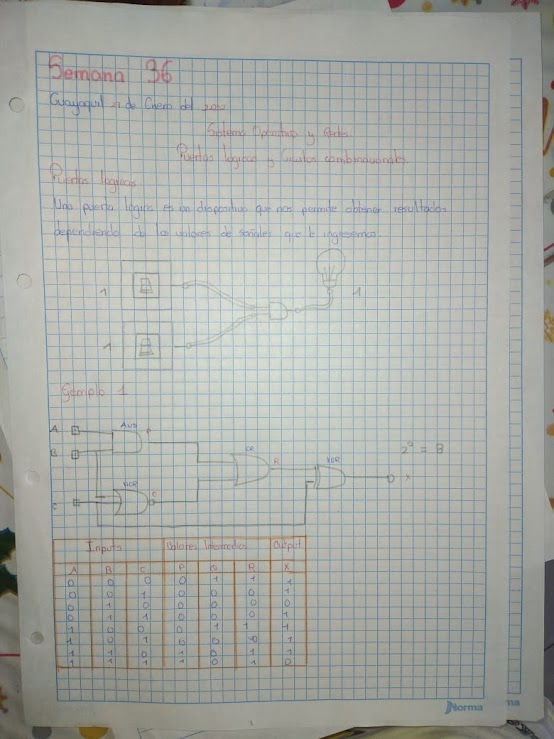 Semana 36
Guayaquil 21 de Enero del
Sistema Operativo y Redes
Puertas logicas y Circuitos combinacionales
Puertas logicas
Una puerta logica es un dispositivo que nos permite obtener resultados
dependiendo de los valores de señales que le ingresemos.
1
1
1
Ejemplo 1
A
AND
P
B
OR
R
XOR
= 8
X
NOR
C
Inputs Valores Intermedios Output
A B C P Q R X
0 0 0 0 1 1 1
0 0 1 0 0 0 1
0 1 0 0 0 0 0
0 1 1 0 0 0 1
1 0 0 0 1 1 1
1 0 1 0 0 0 1
1 1 0 1 0 1 1
1 1 1 1 0 1 0
Norma
ma